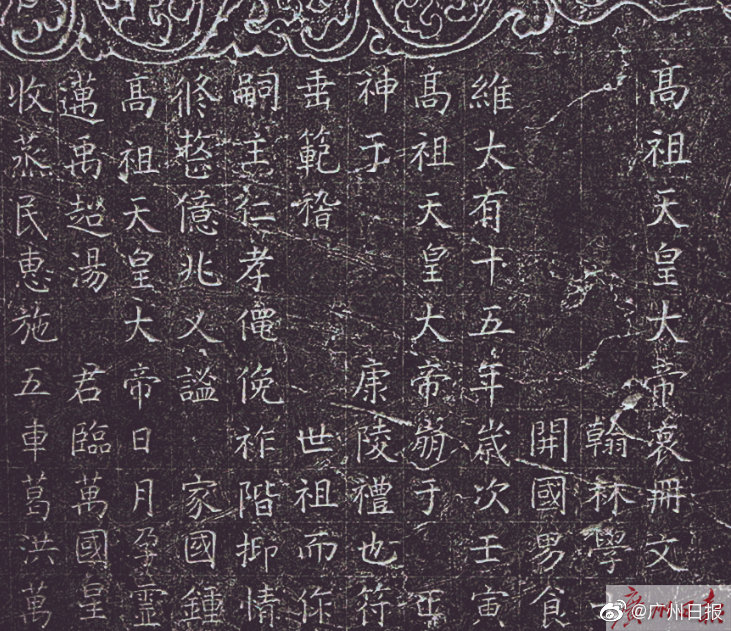 高祖天皇大帝哀冊文
翰林學
開國男食
維大有十五年歲次壬寅
高祖天皇大帝崩于 正
神于 康陵禮也符
垂範稽 世祖而作
嗣主仁孝僶俛祚階抑情
修慜億兆乂謐 家國鍾
高祖天皇大帝日月孕靈
邁禹超湯 君臨萬國皇
收烝民惠施五車葛洪萬
@广州日报